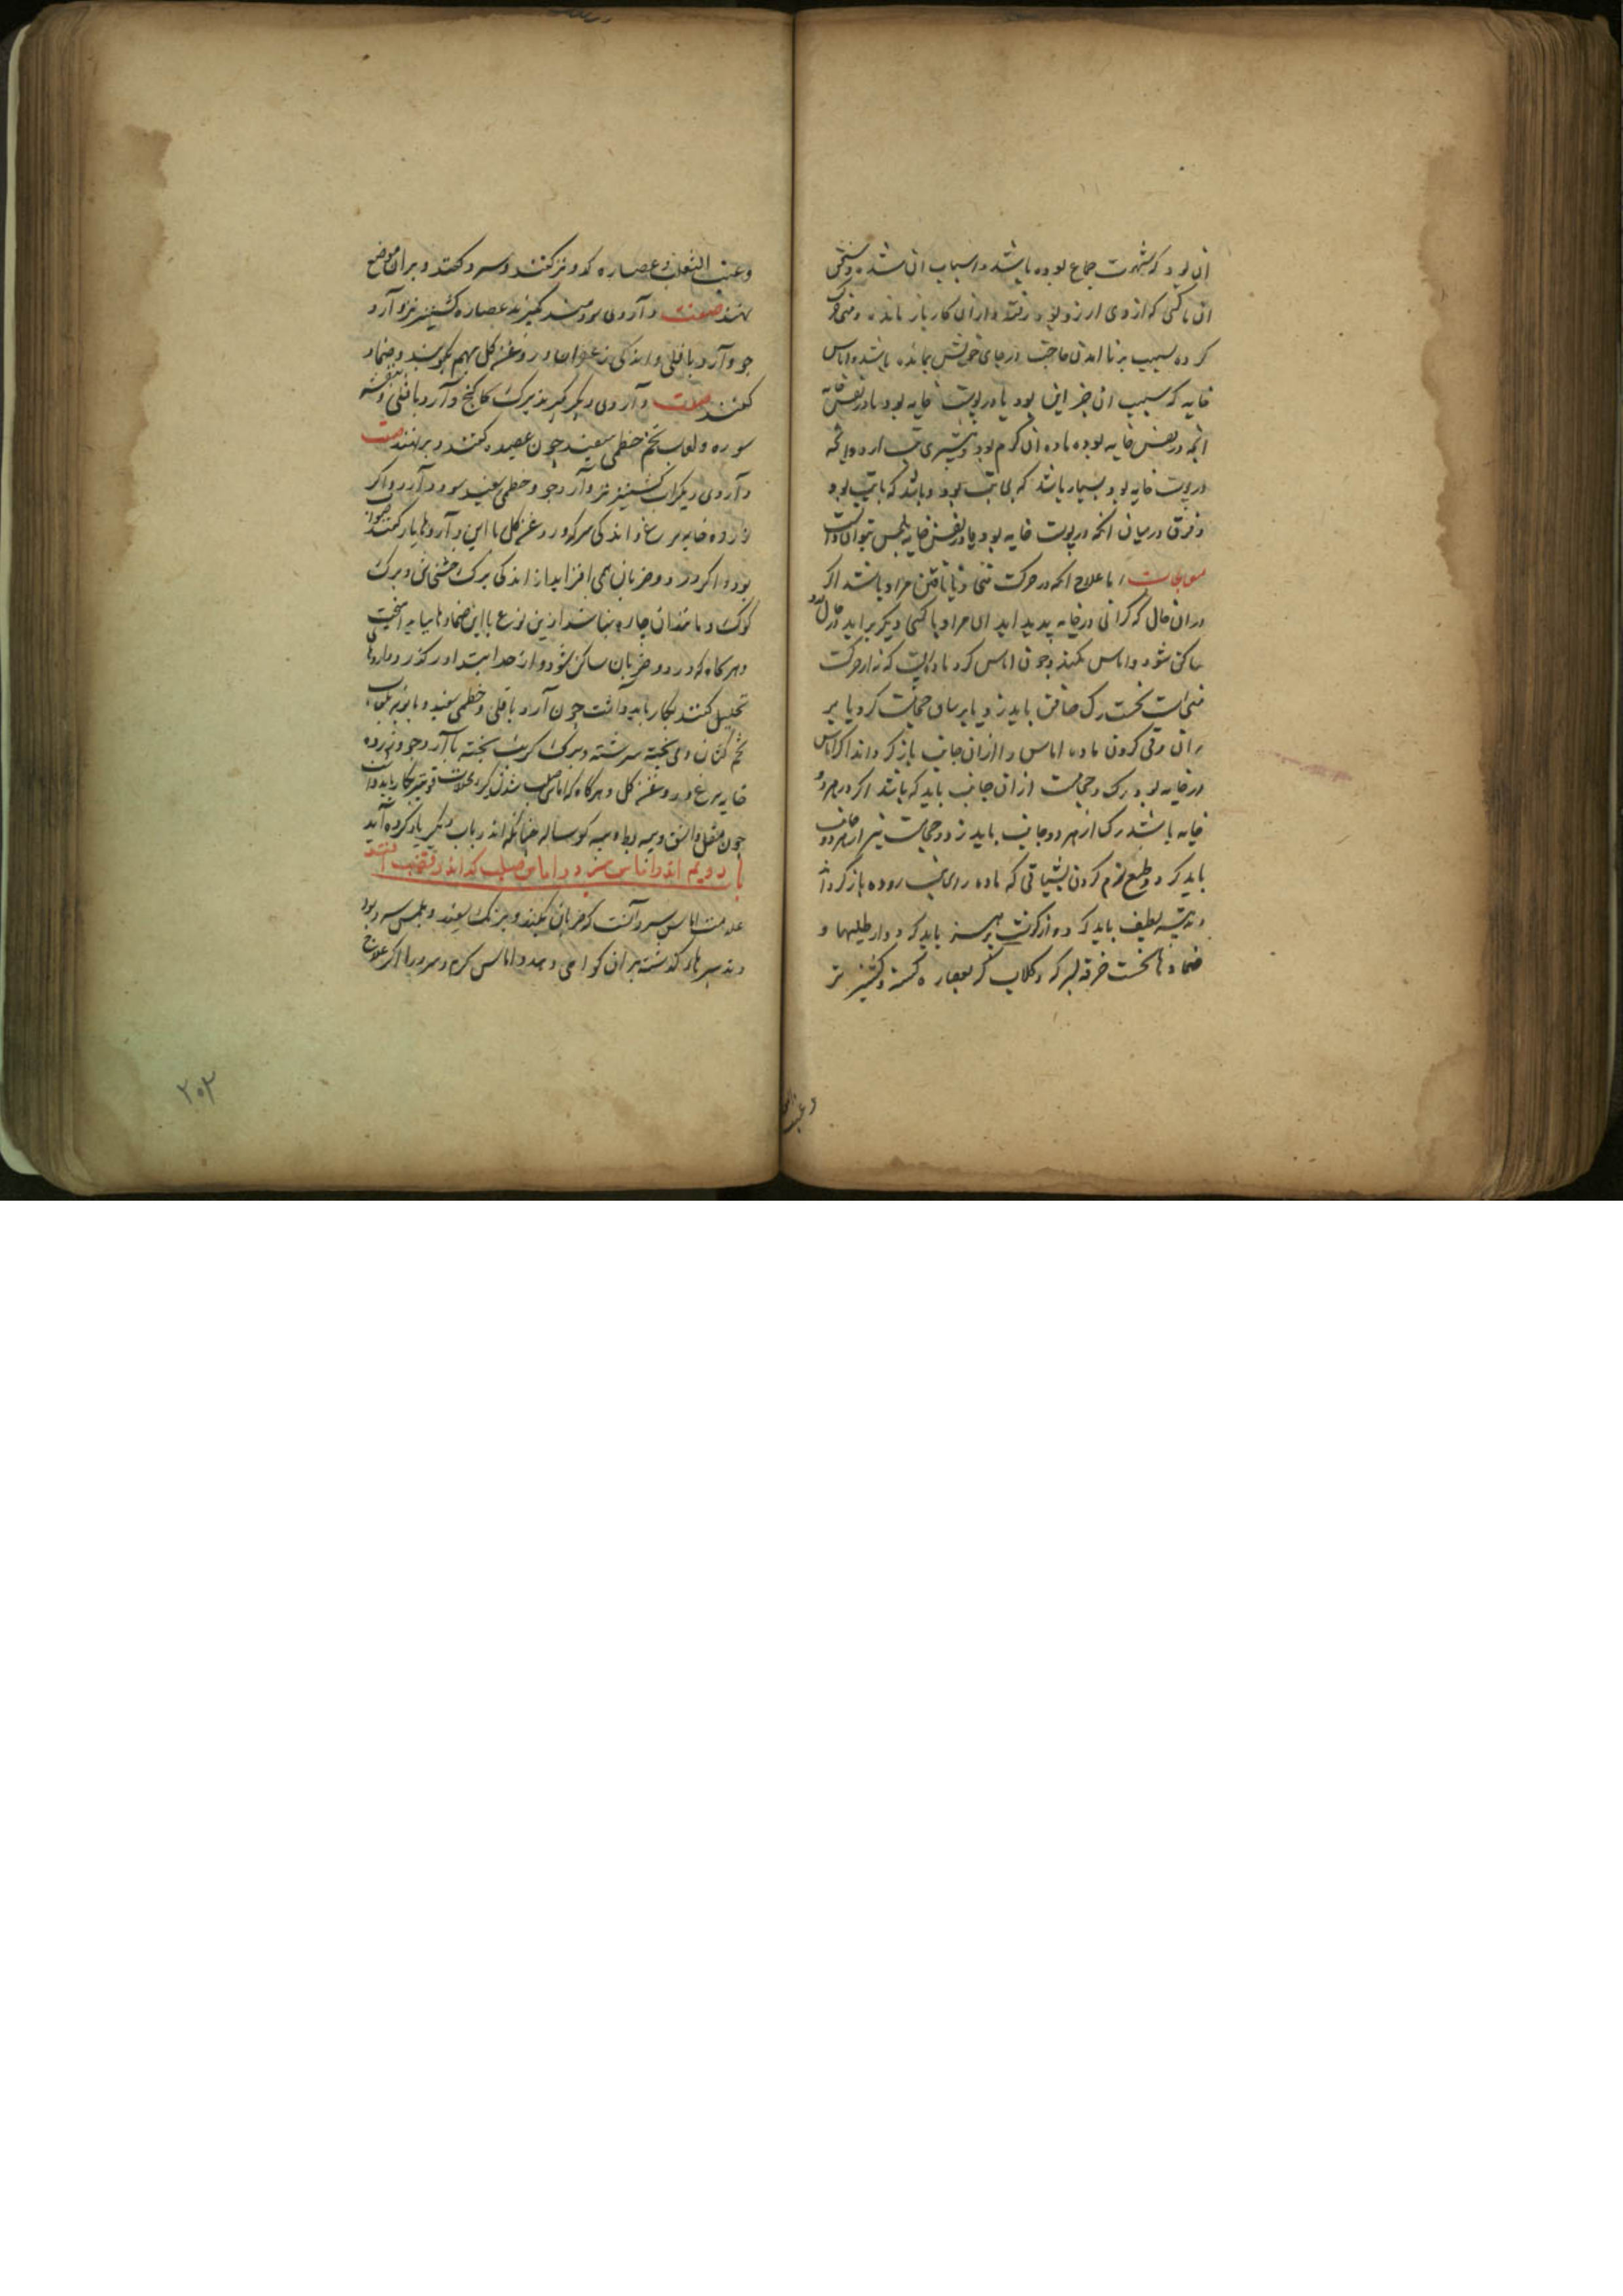 ان بود که شهوت جماع بوده باشد و اسباب ان شده و شخص
ان با کسی که ازوی ارزو بود رفته و ازان کار باز مانده و منی حرکت
کرده بسبب برنا امدن حاجت در جای خویش بمانده باشد و اماس
خایه که سبب ان جز این بود یا در پوست خایه بود یا در نفس خایه
انچه در نفس خایه بود ماده ان گرم بود و بیشتری تب ارد و انچه
در پوست خایه بود بسیار باشد که بی تب بود و باشد که با تب بود
و فرق در میان انچه در پوست خایه بود و یا در نفس خایه بلمس بتوان دانست
معالجات اما علاج انچه در حرکت منی و نایافتن مراد باشد اگر
در ان حال که گرانی در خایه پدید اید ان مراد با کسی دیگر براید در حال درد
ساکن شود و اماس نکند و چون اماس کرد ماده ایست که نه از حرکت
منی است نخست رگ صافن باید زد یا بر ساق حجامت کرد یا بر
ران و قی کردن ماده اماس را ازان جانب باز گرداند اگر اماس
در خایه بود رگ و حجامت از ان جانب باید که باشد اگر در هر دو
خایه باشد رگ از هر دو جانب باید زد و حجامت نیز از هر دو جانب
باید کرد و طبع نرم کردن بشیافی که ماده را بجانب روده باز گرداند
و تدبیر لطیف باید کرد و از گوشت پرهیز باید کرد و از طلیها و
ضمادها نخست خرقه بسرکه و گلاب تر و عصاره کسنه و کشنیز تر
و عنب
وعنب الثعلب و عصاره کدو تر کنند و سرد کنند و بران موضع
نهند صفت دآروی سودمند بگیرند عصاره کشنیز تر و آرد
جو و آرد باقلی و اندکی زعفران و روغن گل بهم بکوبند و ضماد
کنند صفت دآروی دیگر بگیرند برگ کاکنج و آرد باقلی و بنفشه
سوده و لعاب تخم خطمی سفید چون عصیده کنند و برنهند صفت
دآروی دیگر اب کشنیز تر و آرد جو و خطمی سفید سود دارد و اگر
زرده خایه مرغ و اندکی سرکه و روغن گل با این دآروها یار کنند صواب
بود و اگر درد و ضربان همی افزاید از اندکی برگ خشخاش و برگ
کوک و مانندان چاره نباشد ازین نوع با این ضمادها بباید آمیخت
و هرگاه که درد و ضربان ساکن شود و از حد ابتدا در گذرد داروها
تحلیل کنند بکار باید داشت چون آرد باقلی و خطمی سفید و بابونه
تخم کتان و می پخته سرشته و برگ کرنب پخته با آرد جو و زرده
خایه مرغ و روغن گل و هرگاه که اماس صلب شدن گیرد محللات قوی‌تر بکار باید داشت
چون مقل و اشق و پیه بط و پیه گوساله چنانکه اندر باب دیگر یاد کرده آید
باب دویم اندر اماس سرد و اماس صلب که اندر قضیب افتد
علامت اماس سرد آنست که ضربان نکند و برنگ سفید و بلمس سرد بود
و تدبیرهاء گذشته بران گواهی دهد و اماس گرم و سرد را اگر علاج
۲۰۳